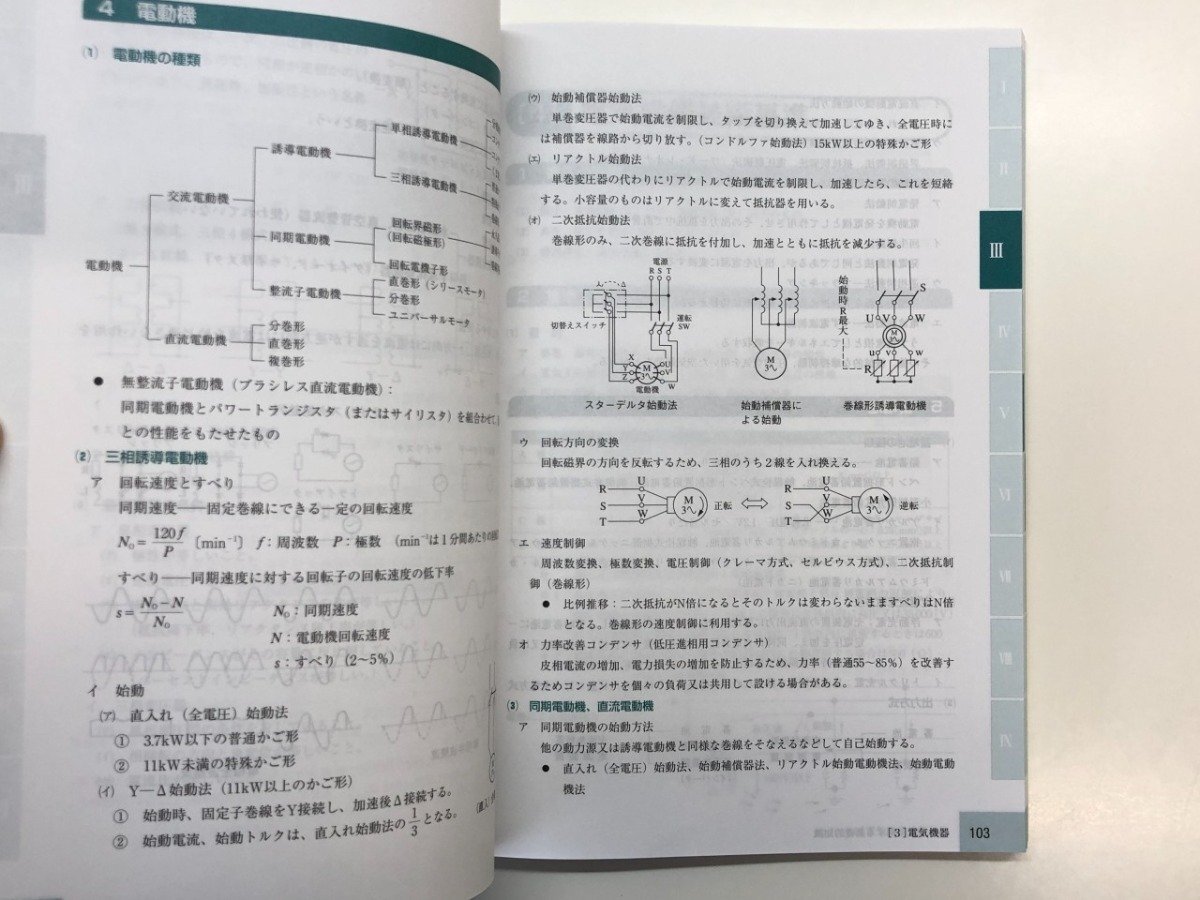 4 電動機
(1) 電動機の種類
単相誘導電動機
誘導電動機
三相誘導電動機
交流電動機
回転界磁形
(回転磁極形)
同期電動機
回転電機子形
電動機
直巻形(シリースモータ)
整流子電動機
分巻形
ユニバーサルモータ
分巻形
直流電動機
直巻形
複巻形
● 無整流子電動機(ブラシレス直流電動機):
同期電動機とパワートランジスタ(またはサイリスタ)を組合わせて、
との性能をもたせたもの
(2) 三相誘導電動機
ア 回転速度とすべり
同期速度――固定巻線にできる一定の回転速度
N₀=120f/P〔min⁻¹〕f:周波数 P:極数 (min⁻¹は1分間あたりの
すべり――同期速度に対する回転子の回転速度の低下率
s=N₀−N/N₀ N₀:同期速度
N:電動機回転速度
s:すべり(2〜5%)
イ 始動
(ア) 直入れ(全電圧)始動法
① 3.7kW以下の普通かご形
② 11kW未満の特殊かご形
(イ) Y―Δ始動法(11kW以上のかご形)
① 始動時、固定子巻線をY接続し、加速後Δ接続する。
② 始動電流、始動トルクは、直入れ始動法の1/3となる。
(ウ) 始動補償器始動法
単巻変圧器で始動電流を制限し、タップを切り換えて加速してゆき、全電圧時に
は補償器を線路から切り放す。(コンドルファ始動法)15kW以上の特殊かご形
(エ) リアクトル始動法
単巻変圧器の代わりにリアクトルで始動電流を制限し、加速したら、これを短絡
する。小容量のものはリアクトルに変えて抵抗器を用いる。
(オ) 二次抵抗始動法
巻線形のみ、二次巻線に抵抗を付加し、加速とともに抵抗を減少する。
電源
R S T
Δ
切替えスイッチ
運転
SW
X
Y
Z
M
3〜
U
V
W
電動機
スターデルタ始動法
M
3〜
始動補償器に
よる始動
始動時R最大
S
U V W
M
3〜
u v w
R
巻線形誘導電動機
ウ 回転方向の変換
回転磁界の方向を反転するため、三相のうち2線を入れ換える。
R U
S V M 3〜 正転
T W
R U
S V M 3〜 逆転
T W
エ 速度制御
周波数変換、極数変換、電圧制御(クレーマ方式、セルビウス方式)、二次抵抗制
御(巻線形)
● 比例推移:二次抵抗がN倍になるとそのトルクは変わらないまますべりはN倍
となる。巻線形の速度制御に利用する。
オ 力率改善コンデンサ(低圧進相用コンデンサ)
皮相電流の増加、電力損失の増加を防止するため、力率(普通55〜85%)を改善す
るためコンデンサを個々の負荷又は共用して設ける場合がある。
(3) 同期電動機、直流電動機
ア 同期電動機の始動方法
他の動力源又は誘導電動機と同様な巻線をそなえるなどして自己始動する。
● 直入れ(全電圧)始動法、始動補償器法、リアクトル始動電動機法、始動電動
機法
[3]電気機器 103
I
II
III
IV
V
VI
VII
VIII
IX